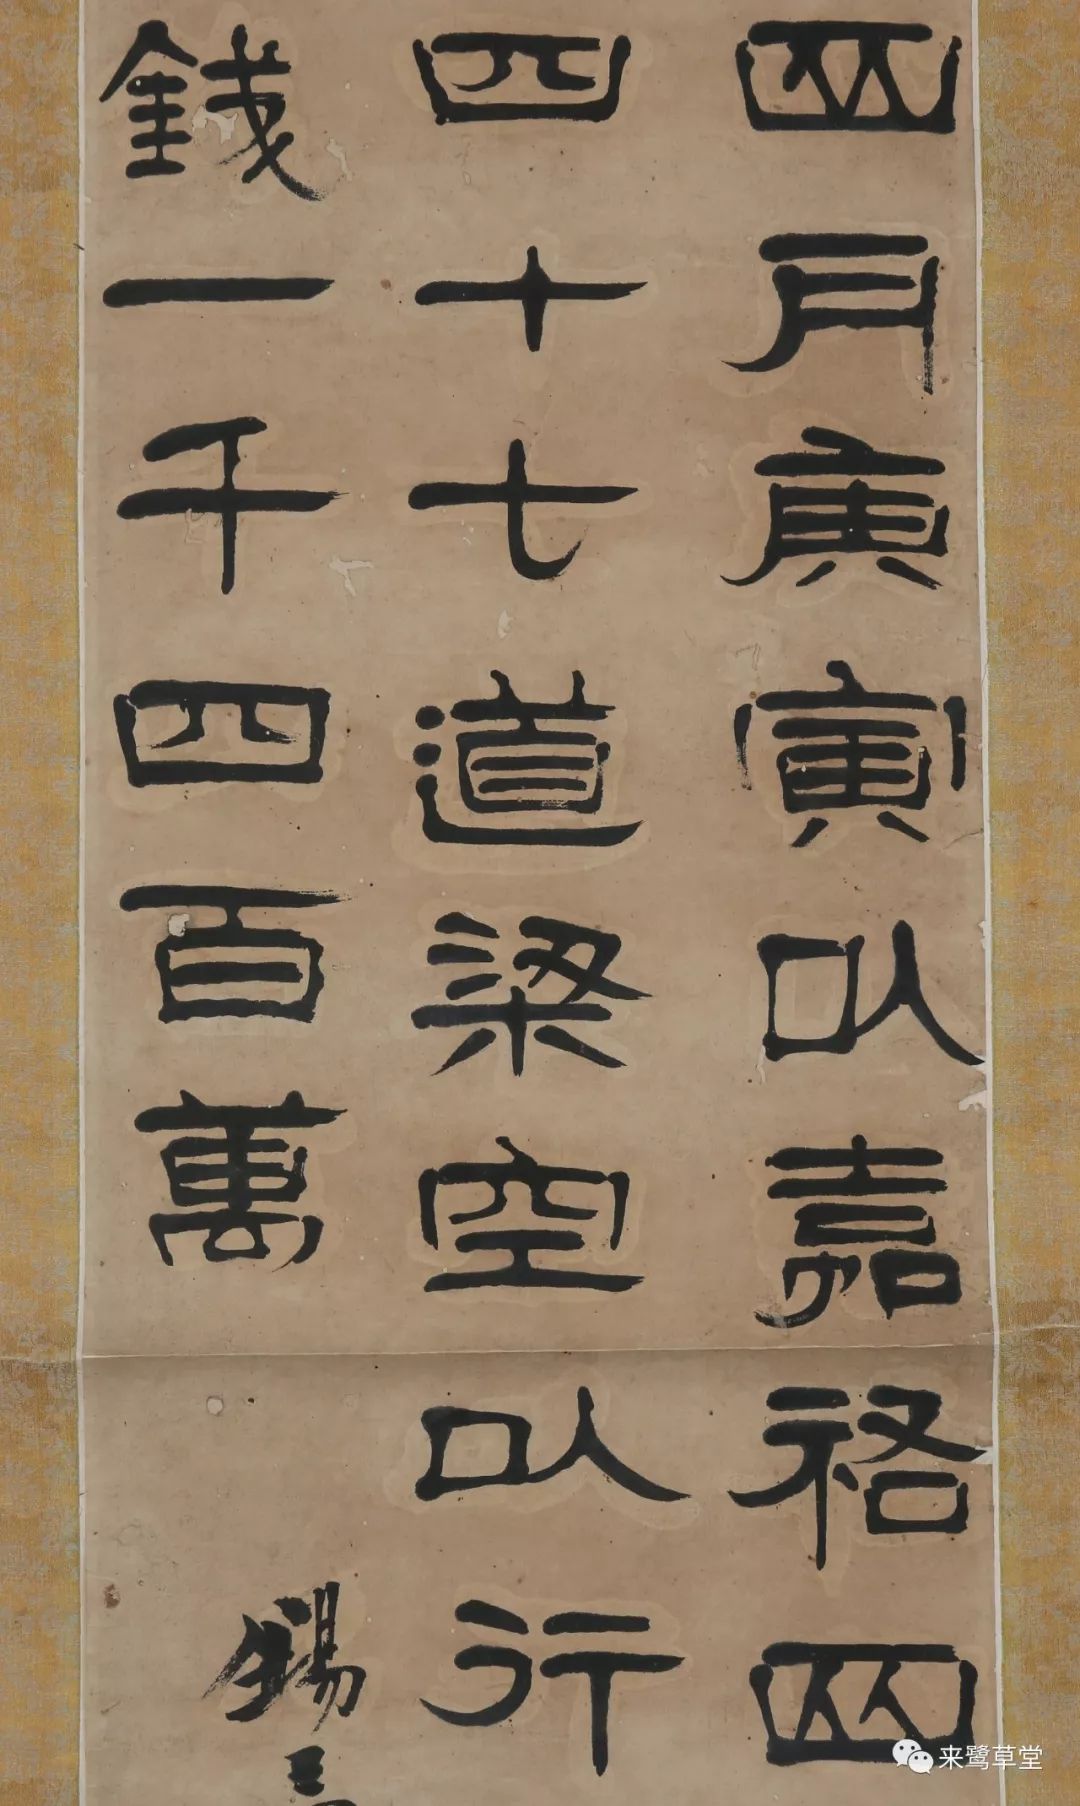 四月庚寅以嘉祐四
四十七道梁空以行
錢一千四百萬
錫三
来鹭草堂